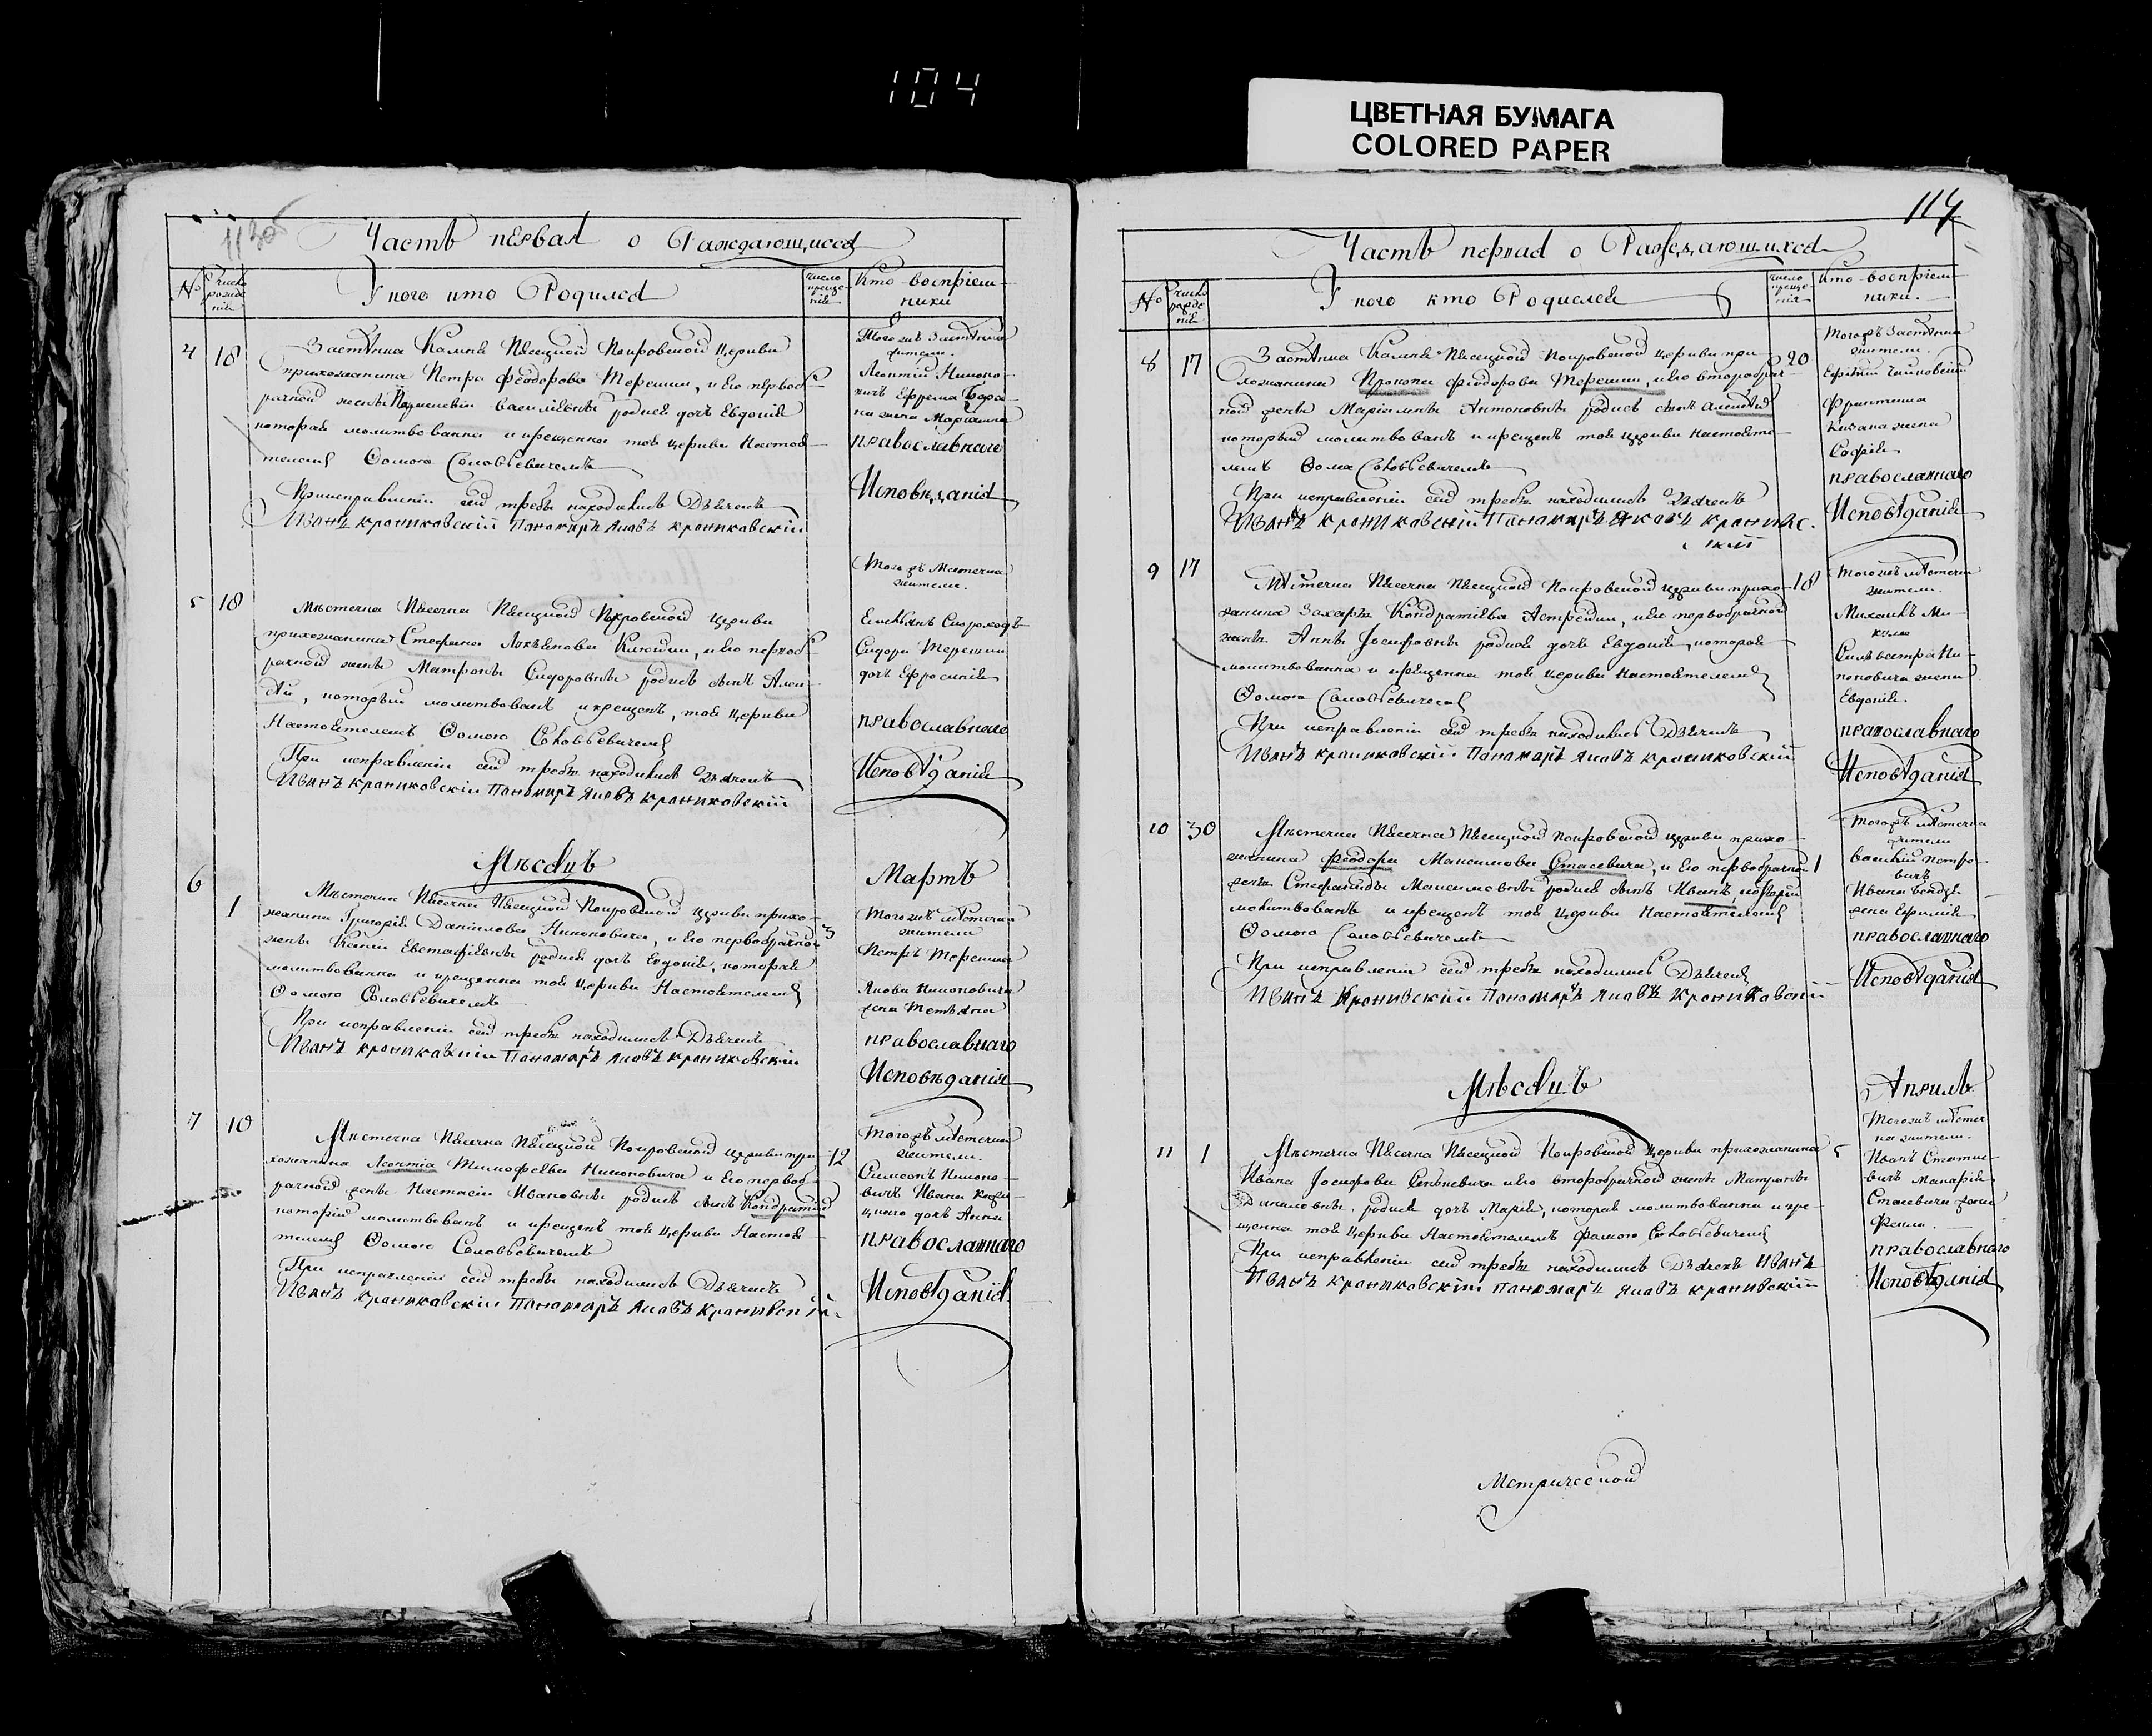 104
ЦВЕТНАЯ БУМАГА
COLORED PAPER
Часть первая о Раждающихся
№
У кого кто Родился
Кто воспріем-
ники
4 18
Застѣнка Калия Пясецкой Покровской Церкви
прихожанина Петра Феодорова Терешки, и его первоб-
рачной жены Василіевны родися дочь Евдокія
которая молитвованна и крещенна той Церкви Настоя-
телемъ Ѳомою Соловьевичемъ
При исправленіи сей требы находились Дьячекъ
Иванъ Крониковскій Панамаръ Яковъ Крониковскій
Тогожъ Застѣнка
жители.
Леонтій Никоно-
вичъ Ефрема
жена Марианна
православнаго
Исповѣданія
5 18
Мястечка Пясечна Пясецкой Покровской Церкви
прихожанина Стефана Лукъянова и его первоб-
рачной жены Матроны Сидоровны родися сынъ Алек-
сѣй, который молитвованъ и крещенъ, той Церкви
Настоятелемъ Ѳомою Соловьевичемъ
При исправленіи сей требы находились Дьячекъ
Иванъ Крониковскій Панамаръ Яковъ Крониковскій
Тогожъ Мястечка
жители.
Емельянъ Скороходъ
Сидора Терешки
дочь Ефросинія
православнаго
Исповѣданія
Мѣсяцъ Мартъ
6 1
Мястечка Пясечна Пясецкой Покровской Церкви прихо-
жанина Григорія Даниловa Никоновича, и его первобрачной 3
жены Ксеніи Евстафіевны родися дочь Евдокія, которая
молитвованна и крещенна той Церкви Настоятелемъ
Ѳомою Соловьевичемъ
При исправленіи сей требы находились Дьячекъ
Иванъ Крониковскій Панамаръ Яковъ Крониковскій
Тогожъ мѣстечка
жители
Петръ Терешка
Якова Никоновича
жена Татьяна
православнаго
Исповѣданія
7 10
Мястечка Пясечна Пясецкой Покровской Церкви при- 12
хожанина Леонтія Тимофеева Никоновича и его первоб-
рачной жены Настасіи Ивановны родися сынъ Кондратій
который молитвованъ и крещенъ той Церкви Настоя-
телемъ Ѳомою Соловьевичемъ
При исправленіи сей требы находились Дьячекъ
Иванъ Крониковскій Панамаръ Яковъ
Тогожъ мѣстечка
жители.
Симеонъ Никоно-
вичъ Ивана
дочь Анна
православнаго
Исповѣданія
114
Часть первая о Раждающихся
№
У кого кто Родился
Кто воспріем-
ники.
8 17
Застѣнка Калия Пясецкой Покровской Церкви при- 20
хожанина Прокопа Феодорова Терешки, и его второбрач-
ной жены Маріанны Антоновны родися сынъ Алексѣй
который молитвованъ и крещенъ той Церкви Настояте-
лемъ Ѳома Соловьевичемъ
При исправленіи сей требы находились Дьячекъ
Иванъ Крониковскій Панамаръ Яковъ Кроников-
скій
Тогожъ Застѣнка
жители.
жена
Софія
православнаго
Исповѣданія
9 17
Мѣстечка Пясечна Пясецкой Покровской Церкви прихо- 18
жанина Захарія Кондратіева и его первобрачной
жены Анны Іосифовны родися дочь Евдокія, которая
молитвованна и крещенна той Церкви Настоятелемъ
Ѳомою Соловьевичемъ
При исправленіи сей требы находились Дьячекъ
Иванъ Крониковскій Панамаръ Яковъ Крониковскій
Тогожъ мѣстечка
жители.
Михаилъ Ми-
кула
Сильвестра Ни-
коновича жена
Евдокія.
православнаго
Исповѣданія
10 30
Мястечка Пясечна Пясецкой Покровской Церкви прихо-
жанина Феодора Максимова Стасевича, и его первобрачной 1
жены Стефаниды Максимовны родися сынъ Иванъ, который
молитвованъ и крещенъ той Церкви Настоятелемъ
Ѳомою Соловьевичемъ
При исправленіи сей требы находились Дьячекъ
Иванъ Панамаръ Яковъ Крониковскій
Тогожъ мѣстечка
жители
Василій Петро-
вичъ
Ивана
жена Ефимія
православнаго
Исповѣданія
Мѣсяцъ Апрель
11 1
Мястечка Пясечна Пясецкой Покровской Церкви прихожанина 5
Ивана Іосифова и его второбрачной жены Матроны
Даниловны, родися дочь Марія, которая молитвованна и кре-
щенна той Церкви Настоятелемъ Фомою Соловьевичемъ
При исправленіи сей требы находились Дьячекъ Иванъ
Иванъ Крониковскій Панамаръ Яковъ
Тогожъ мѣстеч-
ка жители.
Иванъ
Макарія
Стасевича жена
Фекла.
православнаго
Исповѣданія
Метрической